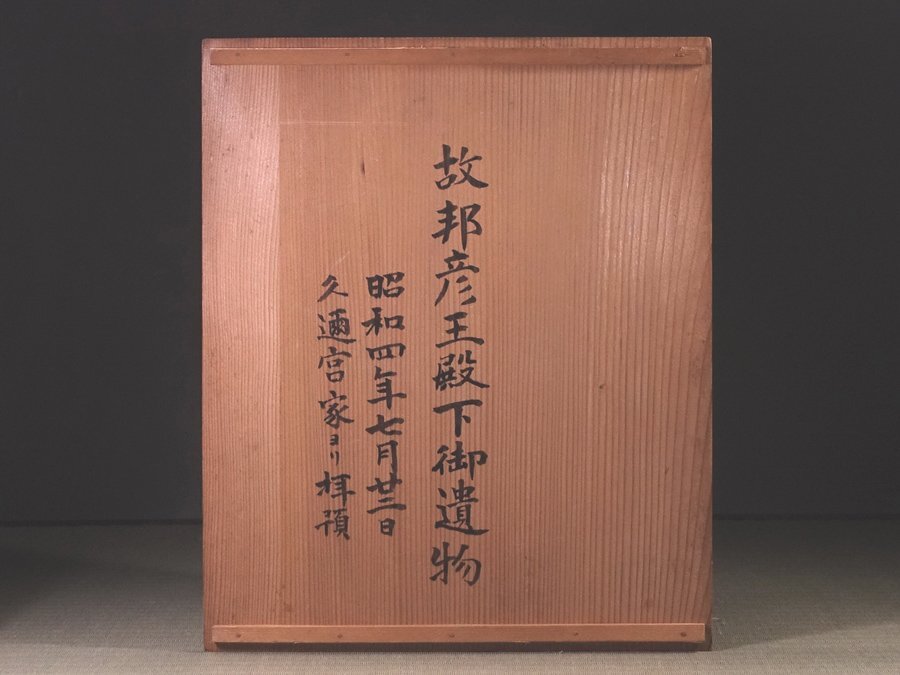 故邦彦王殿下御遺物
昭和四年七月廿二日
久邇宮家ヨリ拝領